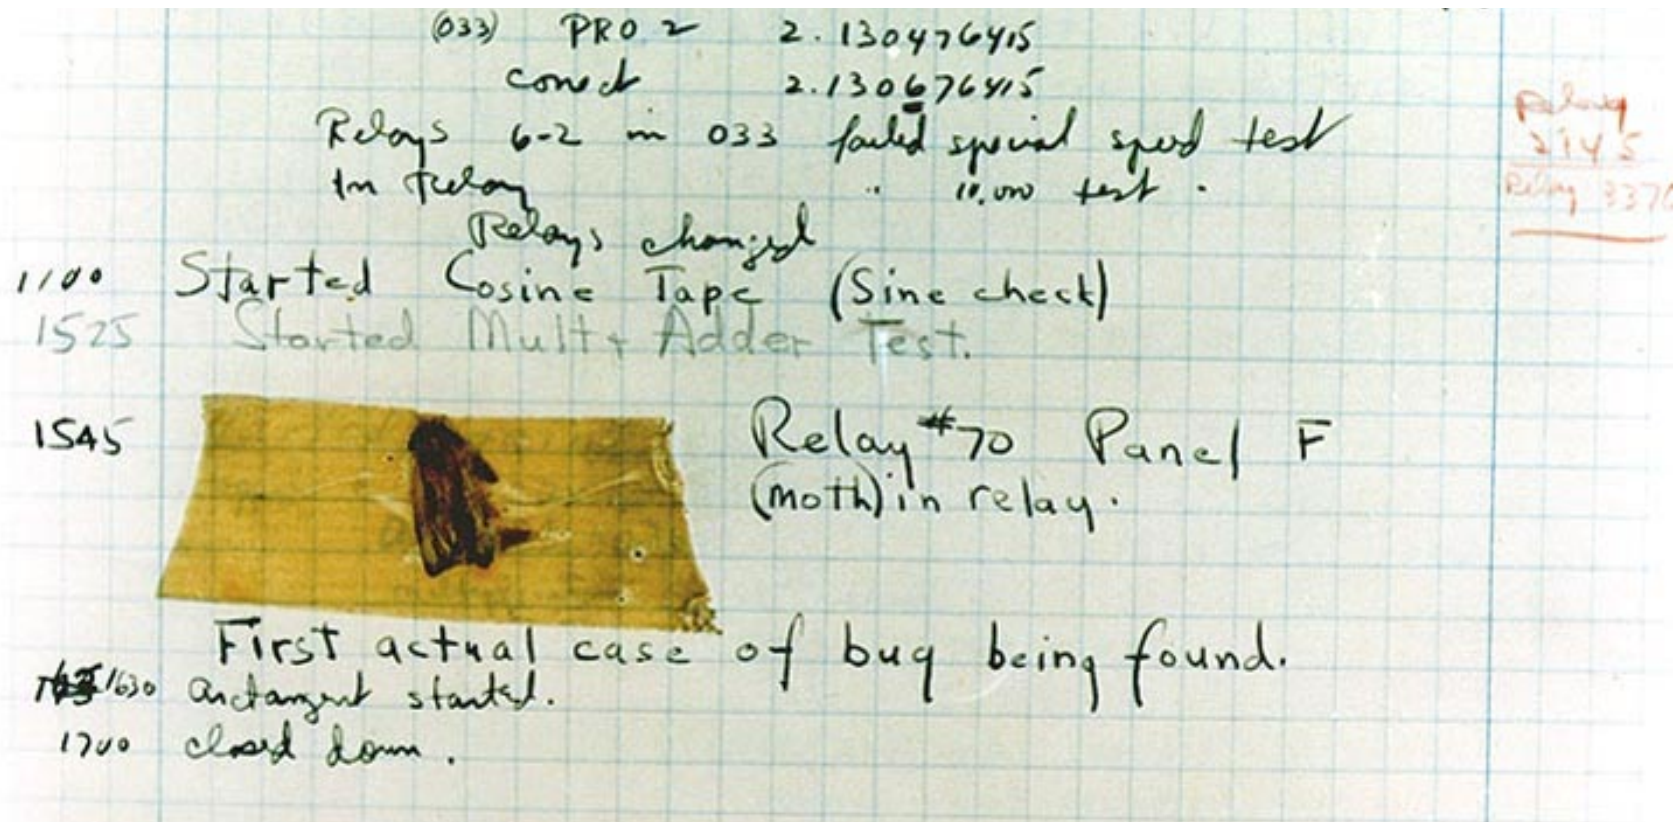 (033) PRO 2 2.130476415
correct 2.130676415
Relays 6-2 in 033 failed special speed test
In Relay " 10.000 test .
Relays changed
1100 Started Cosine Tape (Sine check)
1525 Started Mult + Adder Test.
1545 Relay #70 Panel F
(moth) in relay.
First actual case of bug being found.
1630 arctangent started.
1700 closed down .
Relay
2145
Relay 3370